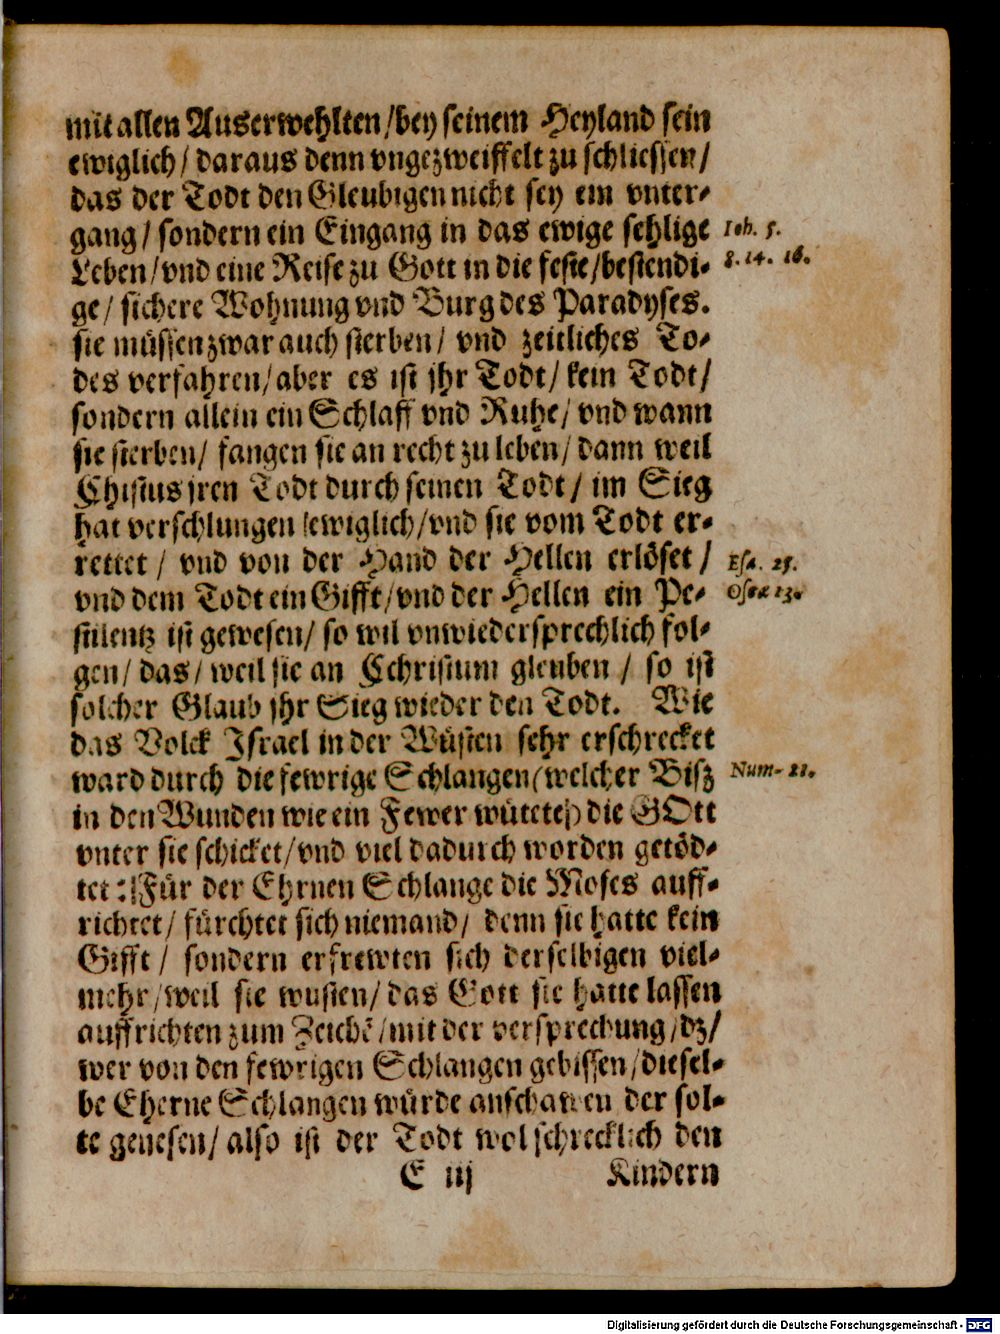 mit allen Auserwehlten/bey seinem Heyland sein
ewiglich/ daraus denn vngezweiffelt zu schliessen/
das der Todt den Gleubigen nicht sey ein vnter-
gang/ sondern ein Eingang in das ewige sehlige
Ioh. 5.
Leben/vnd eine Reise zu Gott in die feste/bestendi-
8. 14. 16.
ge/ sichere Wohnung vnd Burg des Paradyses.
sie müssen zwar auch sterben/ vnd zeitliches To-
des verfahren/aber es ist jhr Todt/ kein Todt/
sondern allein ein Schlaff vnd Ruhe/ vnd wann
sie sterben/ fangen sie an recht zu leben/ dann weil
Chistus jren Todt durch seinen Todt/ im Sieg
hat verschlungen ewiglich/vnd sie vom Todt er-
rettet / vnd von der Hand der Hellen erlöset/
Esa. 25.
vnd dem Todt ein Gifft/vnd der Hellen ein Pe-
Osea 13.
stilentz ist gewesen/ so wil vnwiedersprechlich fol-
gen/ das/ weil sie an Cchristum gleuben / so ist
solcher Glaub jhr Sieg wieder den Todt. Wie
das Volck Israel in der Wüsten sehr erschrecket
ward durch die fewrige Schlangen (welcher Bisz
Num. 21.
in den Wunden wie ein Fewer wütete) die GOtt
vnter sie schicket/vnd viel dadurch worden getöd-
tet: Für der Ehrnen Schlange die Moses auff-
richtet/ fürchtet sich niemand/ denn sie hatte kein
Gifft/ sondern erfrewten sich derselbigen viel-
mehr/weil sie wusten/das Gott sie hatte lassen
auffrichten zum Zeichē/mit der versprechung/dz/
wer von den fewrigen Schlangen gebissen/diesel-
be Eherne Schlangen würde anschawen der sol-
te genesen/ also ist der Todt wol schrecklich den
E iij Kindern
Digitalisierung gefördert durch die Deutsche Forschungsgemeinschaft - DFG